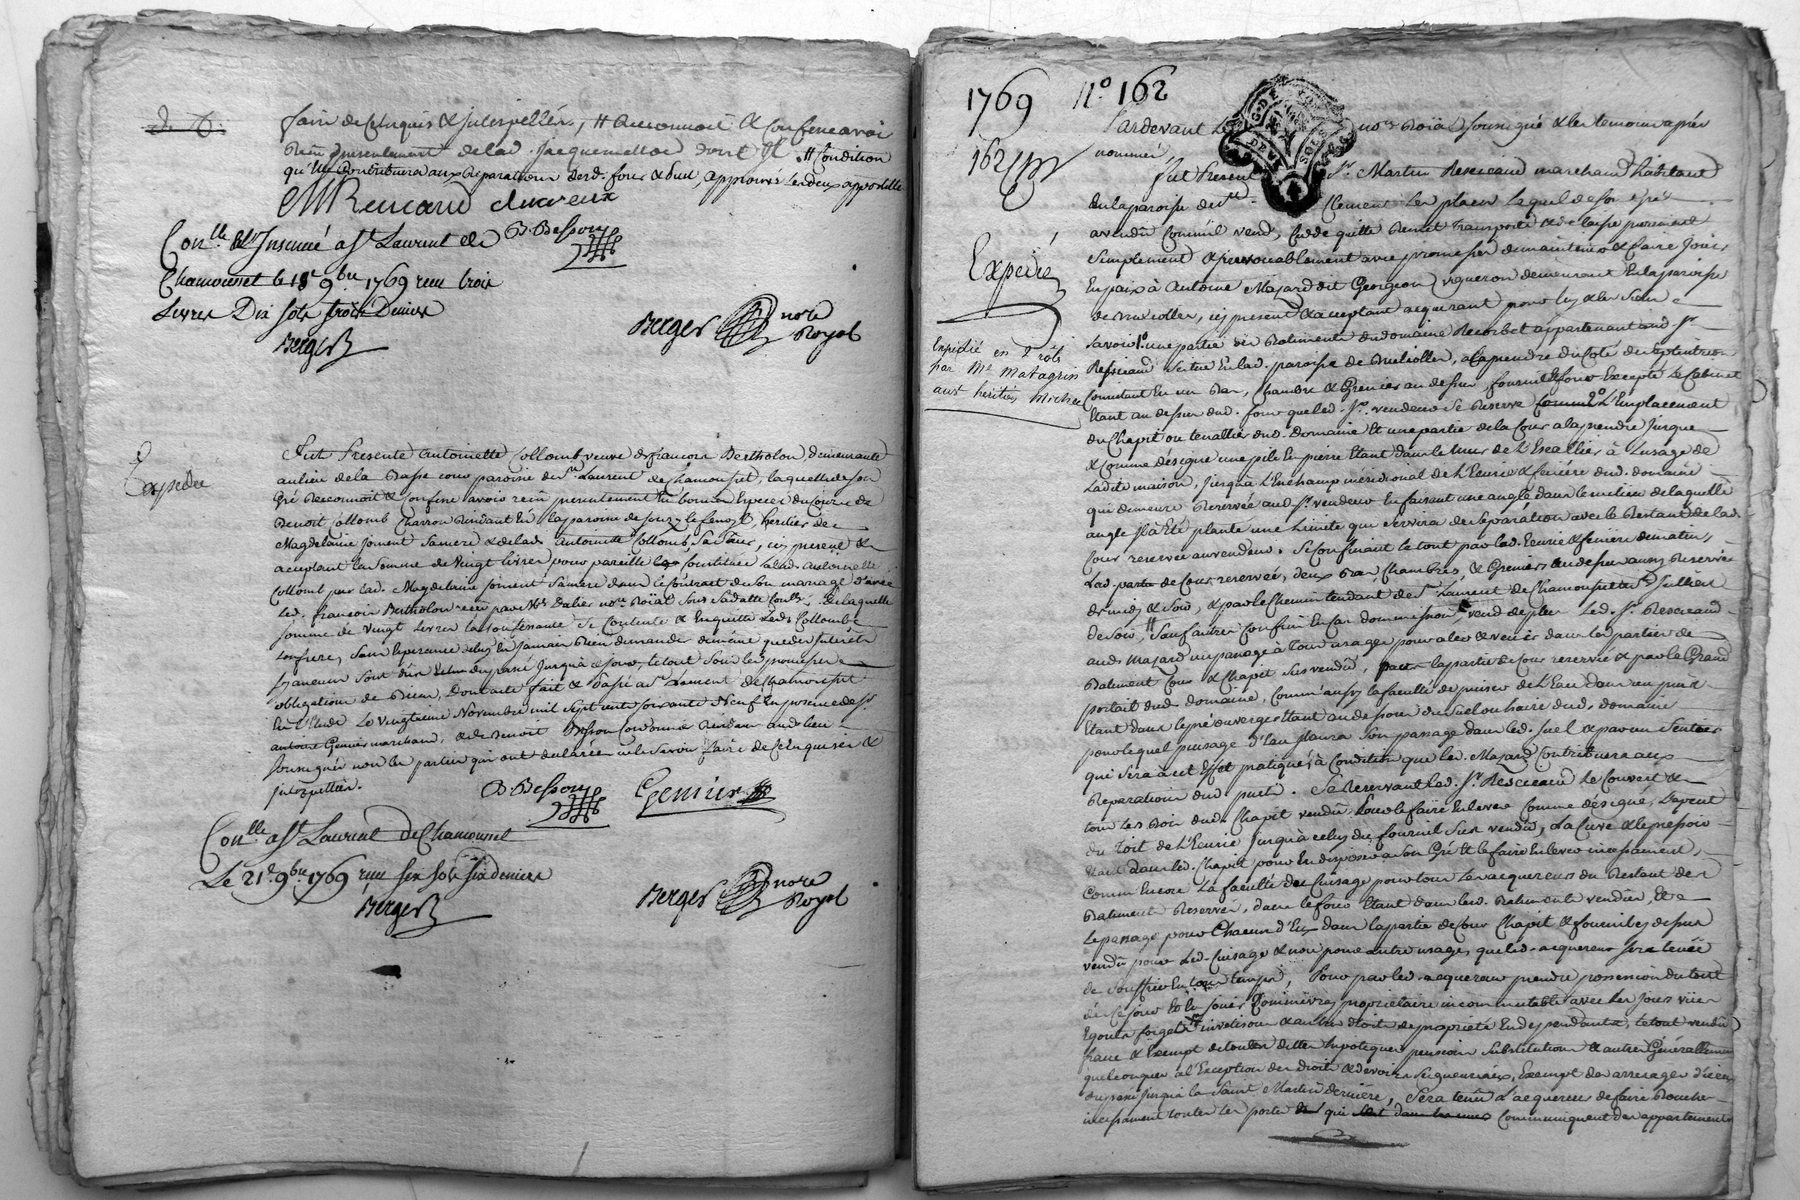 faire de ce enquis & interpellés, # Reconnoit & confesse avoir
Reçu presentement de lad. Jacquemette dont # condition
qu'il contribuera aux reparations desd. four & suel, approuvés les deux appostilles
MRescand duxreux
B. Besson
Con.lle & Insinué a St Laurent de
Chamousset le 18e 9.bre 1769 reçu trois
Livres Dix sols trois Deniers
Berger
Berger nore
Royal
Expedié
Fut Presente Antoinette Collomb veuve de francois Bertholon, demeurante
au lieu de la Basse cour paroisse de St Laurent de Chamousset, laquelle de son
Gré Reconnoit & confesse avoir reçu presentement En bonnes Especes du Cours de
Benoit Collomb Charron Residant En la paroisse de Souzy Heritier de
Magdelaine joment sa mere & de lad. Antoinette Collomb sa sœur, icy present &
acceptant la somme de vingt livres pour pareille constituée a lad. Antoinette
Collomb par lad. Magdelaine joment sa mere dans le Contrat de son mariage d'avec
led. francois Bertholon reçu par Me Dalier no.re Roïal sous sa datte Con.lé, de laquelle
somme de vingt Livres la confessante se Contente & En quitte led. Collomb
son frere, sans Esperance de luy En jamais Rien demander de même que des Interets
jusqu'à ce jour, le tout sous les promesses
obligations de Biens, Dont acte fait & Passé a St Laurent de Chamousset
En L'Etude Le vingtieme Novembre mil sept cents soixante Neuf En presence de Sr
antoine Genier marchand, & de Benoit Besson Cordonnier Residant aud. lieu
soussignés non les parties qui ont declarées ne le scavoir faire de ce Enquises &
jnterpellées.
B. Besson Genier
Con.lle a St Laurent de Chamousset
Le 21e 9bre 1769 reçu six sols six deniers
Berger
Berger nore
Royal
1769 No 162
Pardevant Le no.re Roïal soussigné & les temoins après
nommés,
162
fut Present Sr. Martin Rescicaud marchand habitant
En la paroisse de St. Clement les places Lequel de son gré
a vendu comme il vend, Cede quitte Remet Transporte & delaisse purement
simplement & irrevocablement avec promesse de maintenir & faire Jouir
Expedié
En paix à Antoine Mazard dit Georgeon vigneron demeurant En la paroisse
de Brulioller, icy present & acceptant acquerant pour luy & les siens
savoir 1o. une partie des Batiments du domaine Recorbet appartenant aud. Sr.
Expedié en 2 rôls
par Me Matagrin
aux héritiers Michel
Rescicaud situé En lad. paroisse de Brulioller, a la prendre du Coté du septentrion
Consistant En un Bas, Chambre & Greniers au dessus, fournil & four Excepté Le Cabinet
Etant au dessus dud. four que led. Sr. vendeur se Reserve 2o. L'Emplacement
du Chapit ou tenallier dud. Domaine Et une partie de la Cour a la prendre jusque
& comme désigne une pile En pierre Etant dans le mur de L'Escallier à L'usage de
Ladite maison, jusqu'à L'Enchamp méridional de L'Ecurie & feniere dud. domaine
qui demeure Reservée aud. Sr. vendeur En faisant une angle dans le milieu de laquelle
angle Il a Eté planté une Limite qui servira de separation avec le Restant de lad.
Cour reservée au vendeur. Se Confinant le tout par lad. Ecurie & feniere de matin,
Lad. parte de Cour reservée, deux Bas, Chambres, & Greniers au dessus aussy Reservés
de midy & soir, & par le Chemin tendant de St. Laurent de Chamousset a St Jullien
de soir, # sauf autres Confins En Cas domoission, vend de plus Led. Sr. Rescicaud
aud. Mazard un passage à Tous usages pour aler & venir dans les parties de
Batiment Cour & Chapit sus vendus, par la partie de Cour reservée & par le Grand
portail dud. domaine, Comm'aussy la faculté de puiser de L'Eau dans un puit
Etant dans le pré ou verger Etant au dessous du suel ou haire dud. domaine
pour lequel puisage d'Eau Il aura son passage dans led. suel & par un sentier
qui sera à cet Effet pratiqué, à Condition que led. Mazard Contribuera aux
Reparations dud. puits. Se Reservant led. Sr. Rescicaud Le Couvert &
tous les Bois dud. Chapit vendu, pour le faire Enlever Comme désigné, L'apent
du Toit de L'Ecurie jusqu'à celuy du fournil sus vendu, La Cuve & le pressoir
Etant dans led. Chapit pour En disposer a son Gré Et le faire Enlever incessamment,
Comm Encore La faculté de Cuisage pour tous les acquereurs du Restant des
Batiments Reservés, dans le four Etant dans lesd. Batiments vendus, Et
Le passage pour Chacun d'Eux dans la partie de Cour Chapit & fournil cy dessus
vendus pour Led. Cuisage & non pour autre usage, que led. acquereur sera tenu
de souffrir En tous temps, Pour par led. acquereur prendre possession du tout
dès ce jour Et En jouir Comme vray proprietaire incommutable avec les jours vües
Egouts forgets investisons & autres droits de propriété En dependants, le tout vendu
franc & Exempt de toutes dettes hipoteques pensions substitution & autres Generallement
quelconques à l'Exception des droits & devoirs seigneuriaux, Exempt des arrerages d'iceux
du passé jusqu'à la Saint Martin derniere, Sera tenu L'acquereur de faire Boucher
incessament toutes les portes qui Communiquent des appartements